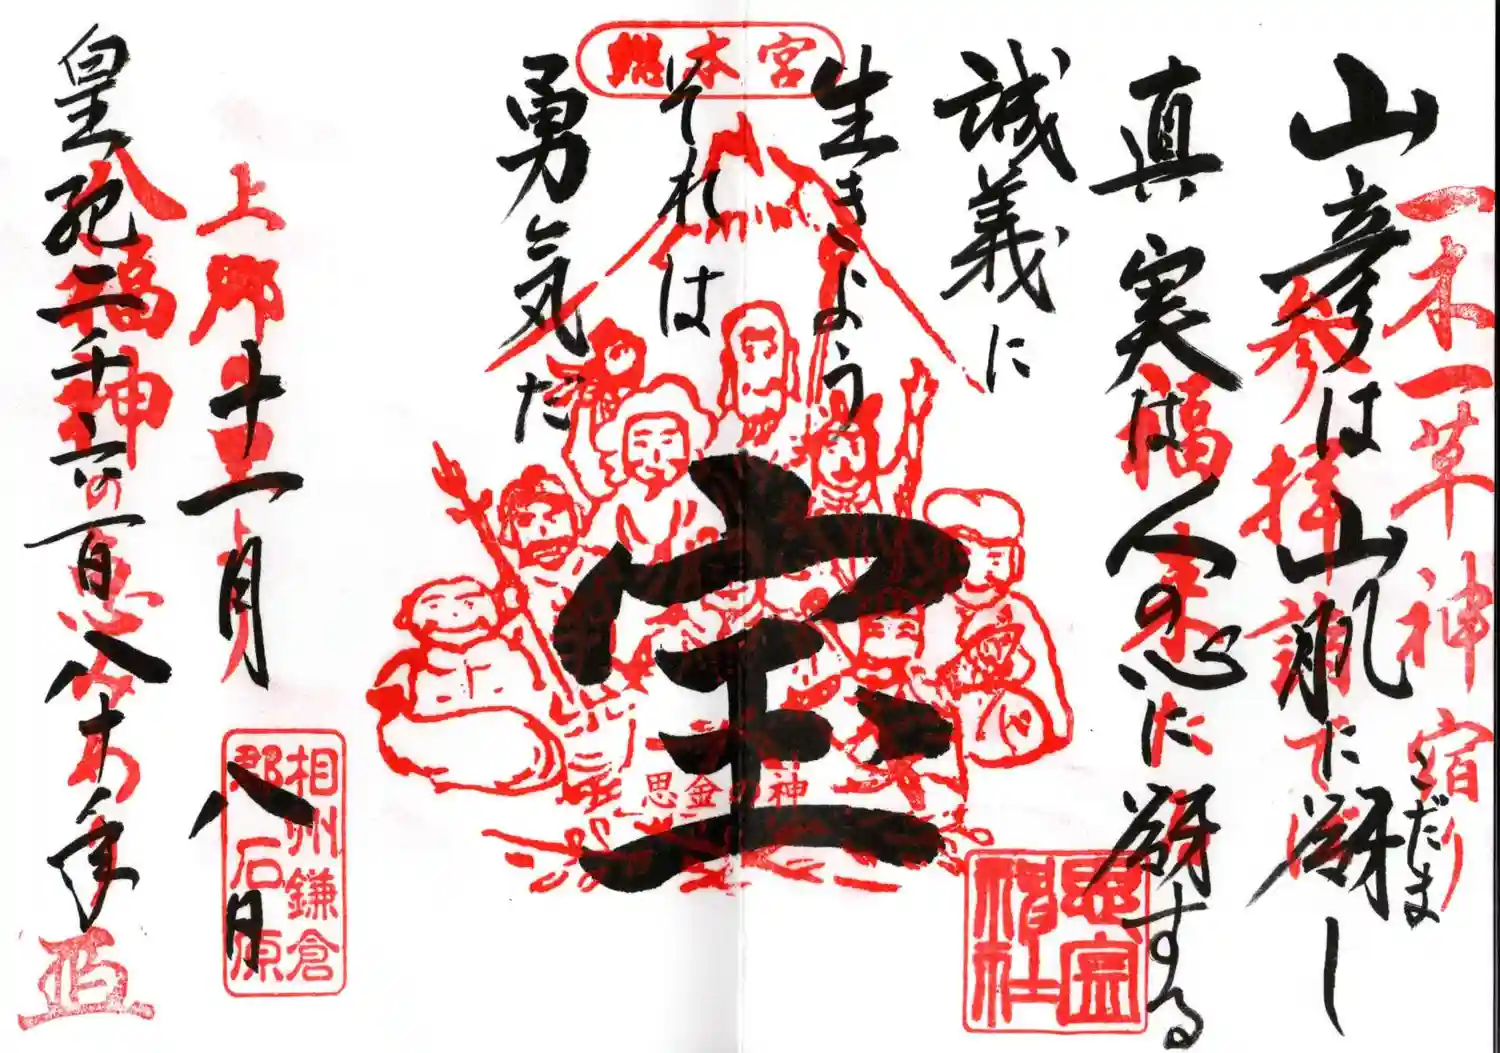 一木一草神宿り
山彦は山肌に谺し
こだま
参拝
真実は人の心に谺する
福
誠義に
生きよう
それは
勇気だ
総本宮
宝
思金の神
上郷
十一月八日
相州鎌倉
郡石原
皇紀二千六百八十年
八福神